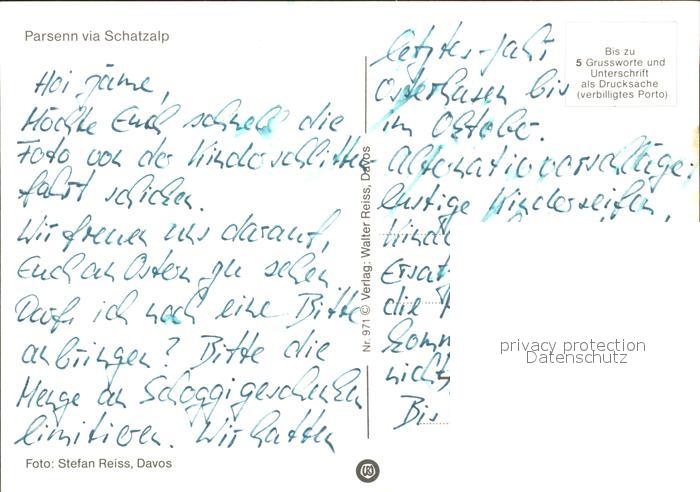 Parsenn via Schatzalp
Hoi zäme,
Möchte Euch schnell die
Foto von der Kinderschlitten-
fahrt schicken.
Wir freuen uns darauf,
Euch an Ostern zu sehen.
Darf ich noch eine Bitte
anbringen? Bitte die
Menge an Schoggigeschenken
limitieren. Wir hatten
Foto: Stefan Reiss, Davos
Nr. 971 © Verlag: Walter Reiss, Davos
letztes Jahr
Osterhasen bis
im Oktober.
Alternativvorschläge:
lustige Kinderseifen,
Kinde
Ersat
die
komm
nicht
Bis
Bis zu
5 Grussworte und
Unterschrift
als Drucksache
(verbilligtes Porto)
privacy protection
Datenschutz